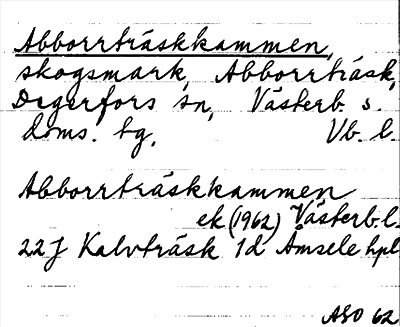 Abborrträskkammen,
skogsmark, Abborrträsk,
Degerfors sn, Västerb. s.
doms. tg, Vb. l.
Abborrträskkammen
ek (1962) Västerb. l.
22J Kalvträsk 1d Åmsele hpl
ASO 62